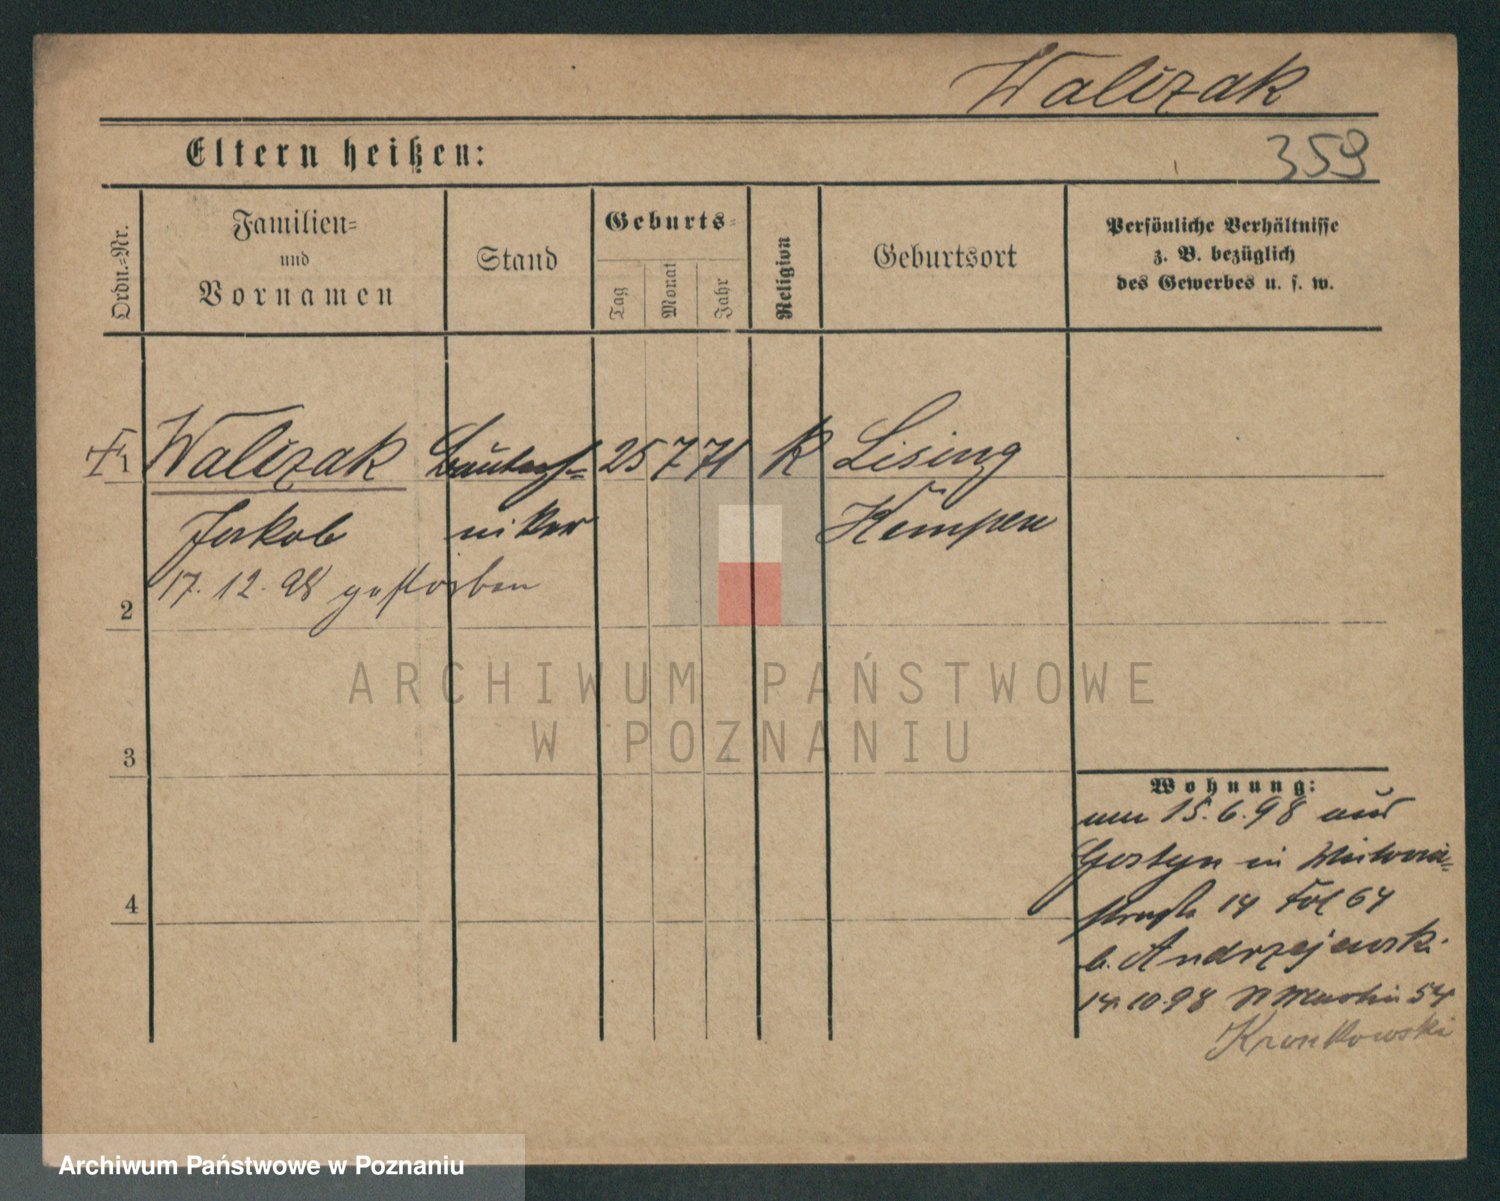 Walczak
Eltern heißen:
359
Ordn.-Nr.
Familien-
und
Vornamen
Stand
Geburts-
Tag
Monat
Jahr
Religion
Geburtsort
Persönliche Verhältnisse
z. B. bezüglich
des Gewerbes u. s. w.
1 Walczak Bautech- 25 7 71 K Lising
Jakob niker Kempen
17. 12. 98 gestorben
2
3
4
Wohnung:
15.6.98 aus
Gostyn in Viktoria-
14 Fol 64
b. Andrzejewski
14.10.98 St Martin 54
Kronkowski
ARCHIWUM PAŃSTWOWE
W POZNANIU
Archiwum Państwowe w Poznaniu